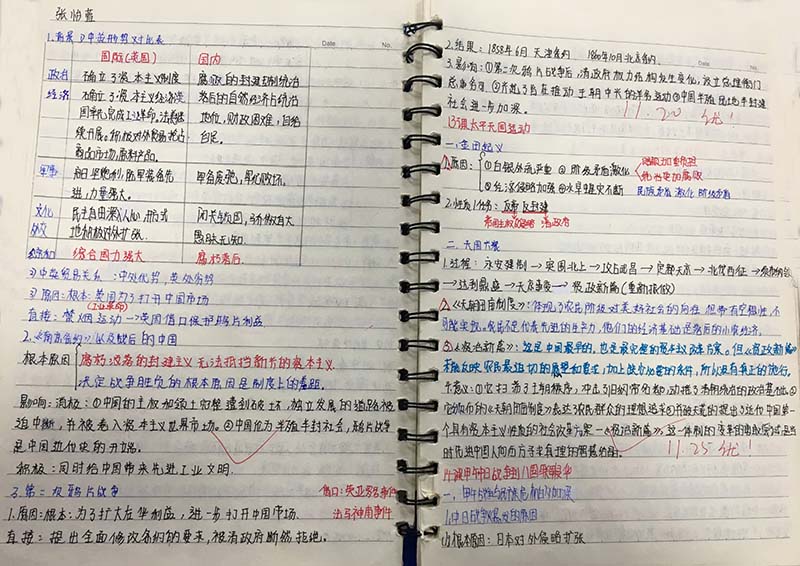 张怡萱
1.背景 ①中英形势对比表
Date
No.
国际(英国)
国内
政治
确立了资本主义制度
腐败的封建专制统治
经济
确立了资本主义经济
落后的自然经济占统治
国率先完成工业革命.
地位,财政困难,自给
续开展.积极对外贸易抢占
自足.
商品市场.原料产品.
军事
船坚炮利,
军备废弛,军纪败坏.
进,力量强大.
文化
民主自由深入人心,
闭关锁国,骄傲自大
外交
地积极对外扩张.
愚昧无知.
综合国力强大
腐朽落后.
②中英贸易关系:中处优势,英处劣势
③原因:根本:英国为了打开中国市场
(工业革命)
直接:禁烟运动→英国借口保护鸦片利益
2.《南京条约》以及战后的中国
根本原因
腐朽没落的封建主义无法抵挡新兴的资本主义.
决定战争胜负的根本原因是制度上的差距.
影响:消极:①中国的主权和领土完整遭到破坏,独立发展的道路被
迫中断,并被卷入资本主义世界市场.②中国沦为半殖半封社会,鸦片战争
是中国近代史的开端.
积极:同时给中国带来先进工业文明.
3.第二次鸦片战争
借口:英亚罗号事件
1.原因:根本:为了扩大在华利益,进一步打开中国市场.
法马神甫事件
直接:提出全面修改条约的要求,被清政府断然拒绝.
2.结果:1858年6月 天津条约 1860年10月北京条约.
Date
No.
3.影响:①第二次鸦片战争后,清政府权力结构发生变化,设立总理衙门
②开起了旨在推动于朝中兴的洋务运动③中国半殖民地半封建
社会进一步加深.
11.20 优!
13课太平天国运动
一、金田起义
1.原因:
①白银外流严重 ②阶级矛盾激化
③经济侵略加重 ④水旱蝗灾不断
民族矛盾激化 阶级矛盾
2.性质/任务:反帝反封建
帝国主义侵略 清政府
二、天国兴衰
1.过程:永安建制→突围北上→攻占武昌→定都天京→北伐西征→
→达到鼎盛→天京事变→资政新篇(重新振作)
2.《天朝田亩制度》:体现了农民阶级对美好社会的向往 但带有空想性,不
可能实现.农民不是代表先进的生产力,他们的经济基础还是落后的小农经济.
3.《资政新篇》:这是中国最早的,也是最完整的资本主义改革方案.但《资政新篇》
未能反映农民最迫切的愿望和要求,加上缺乏必要的条件,所以没有真正的施行.
意义:①它扫荡了王朝秩序,冲击了旧的纲常名教,动摇了本朝统治的政治基础②
它颁布的《天朝田亩制度》表达农民群众的理想追求③开创天荒的提出了近代中国第一
个具有资本主义性质的社会改革方案—《资政新篇》,
时先进中国人向西方寻求真理的
11.25 优!
14课甲午中日战争到八国联军侵华
1.中日战争爆发的原因
(1)根本原因:日本对外侵略扩张